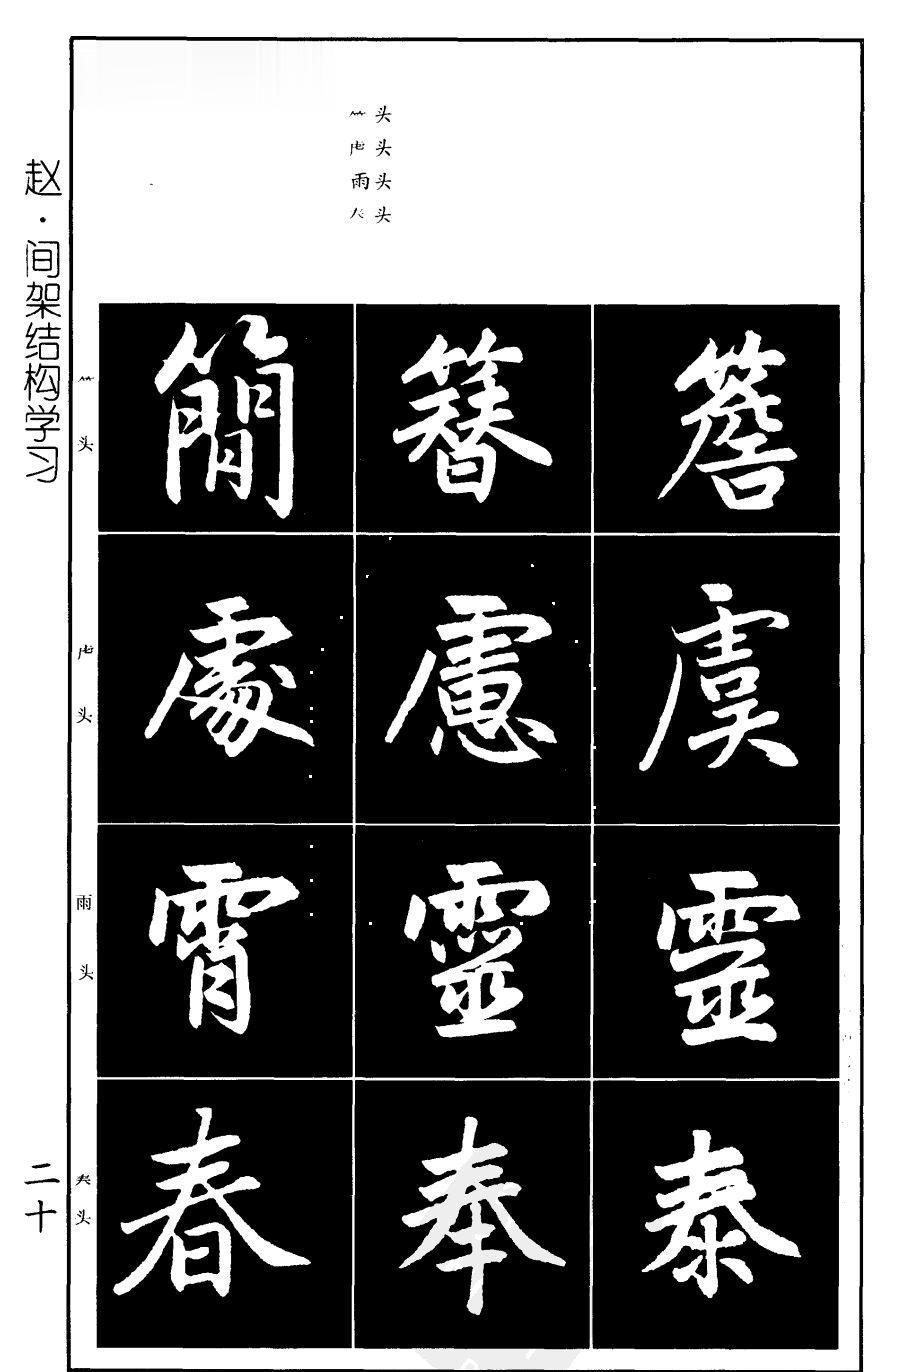 赵·间架结构学习
二十
⺮头
虍头
雨头
𡗗头
⺮头
簡 簪 簷
虍头
處 慮 虞
雨头
霄 靈 靈
𡗗头
春 奉 泰